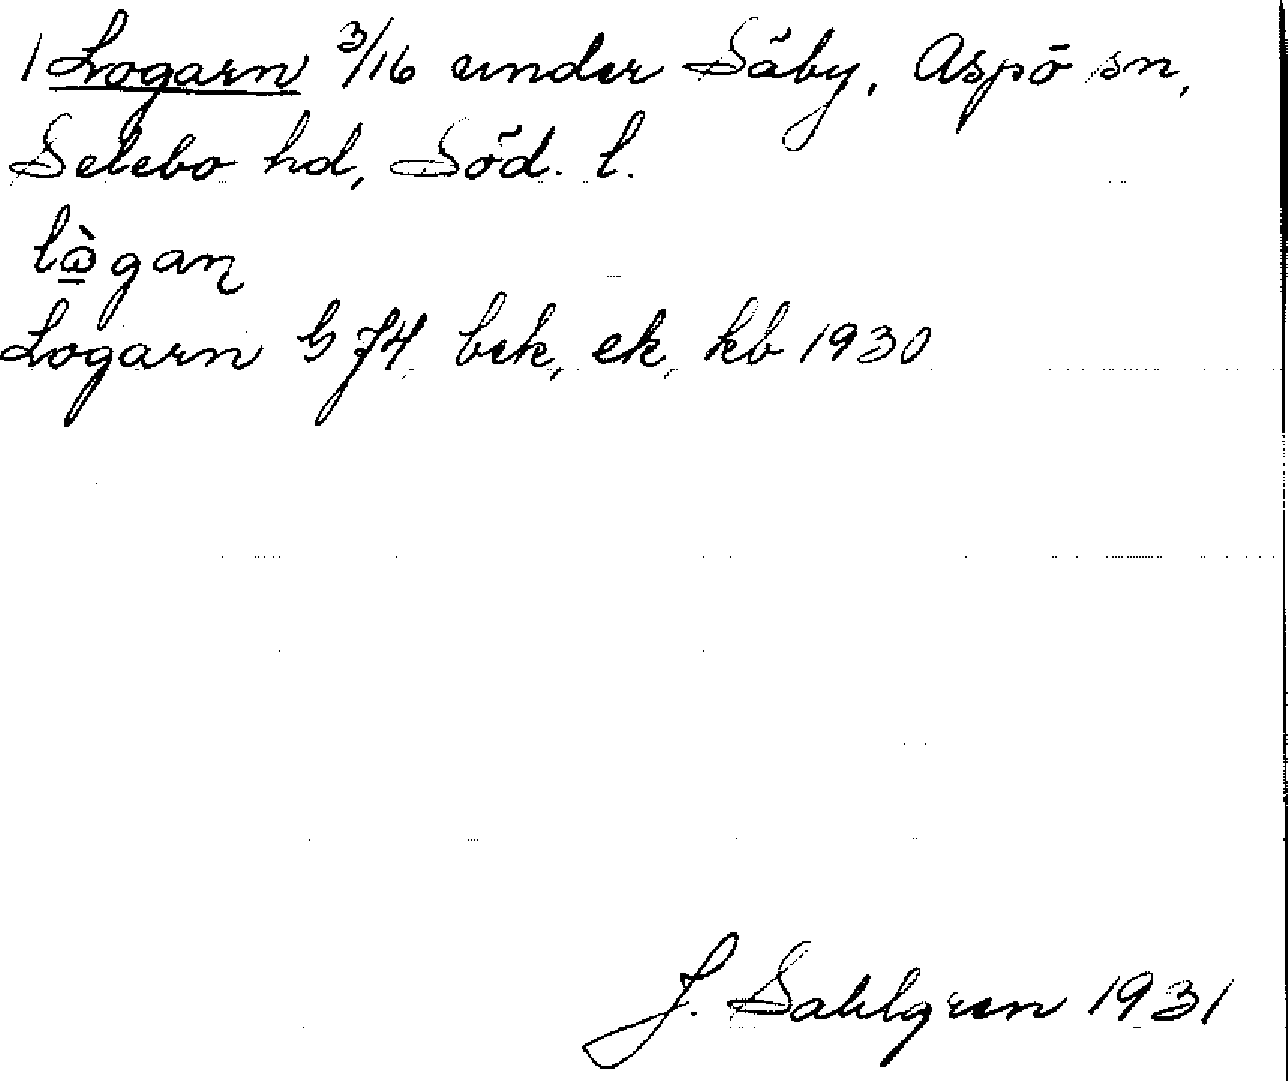 1 Logarn 3/16 under Säby, Aspö sn,
Selebo hd, Söd. l.
lògan
Logarn G 74 bek, ek, kb 1930
J. Sahlgren 1931